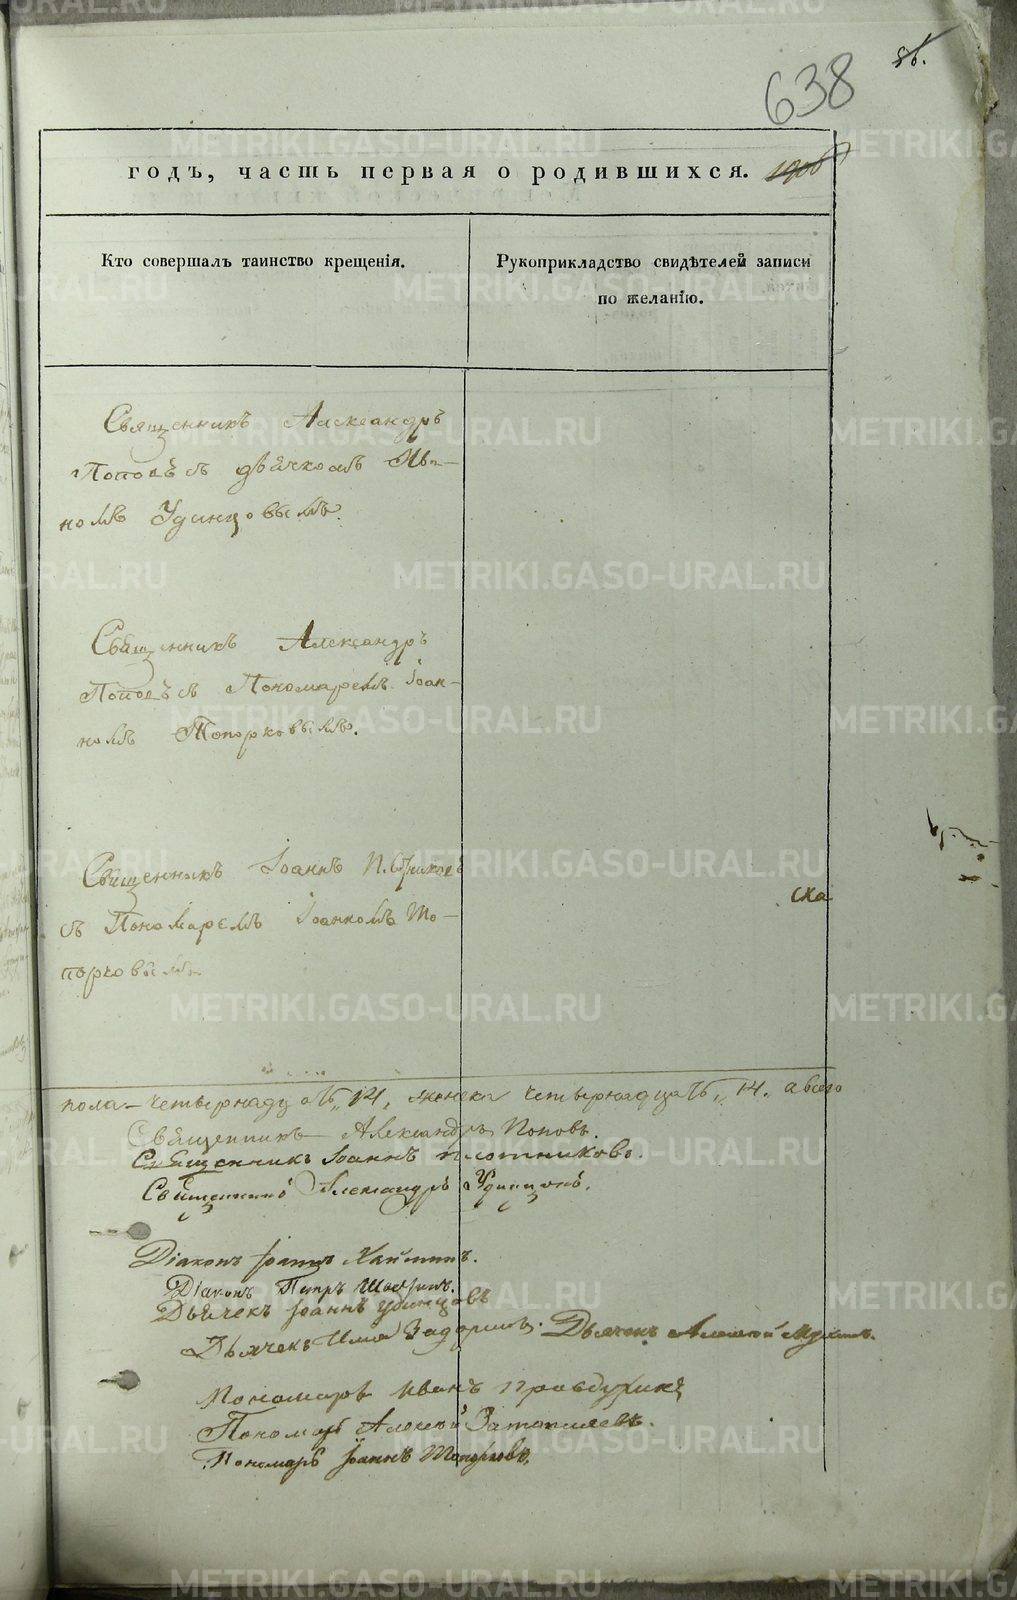 638
годъ, часть первая о родившихся.
Кто совершалъ таинство крещенія.
Рукоприкладство свидѣтелей записи
по желанію.
Священникъ Александръ
Поповъ съ дьячкомъ Ива-
номъ Удинцовымъ.
Священникъ Александръ
Поповъ съ Пономаремъ Іоан-
номъ Топорковымъ.
Священникъ Іоаннъ
съ Пономаремъ Іоанномъ То-
порковымъ
ска
пола – четырнадцать 14, женска четырнадцать 14. а всего
Священникъ Александръ Поповъ.
Священникъ Іоаннъ Плотниковъ.
Священникъ Александръ Удинцовъ.
Діаконъ Іоаннъ
Діаконъ Петръ
Дьячекъ Іоаннъ Удинцовъ
Дьячекъ Илія Задоринъ. Дьячекъ Алексѣй
Пономарь Иванъ
Пономарь Алексѣй
Пономарь Іоаннъ Топорковъ.
METRIKI.GASO-URAL.RU